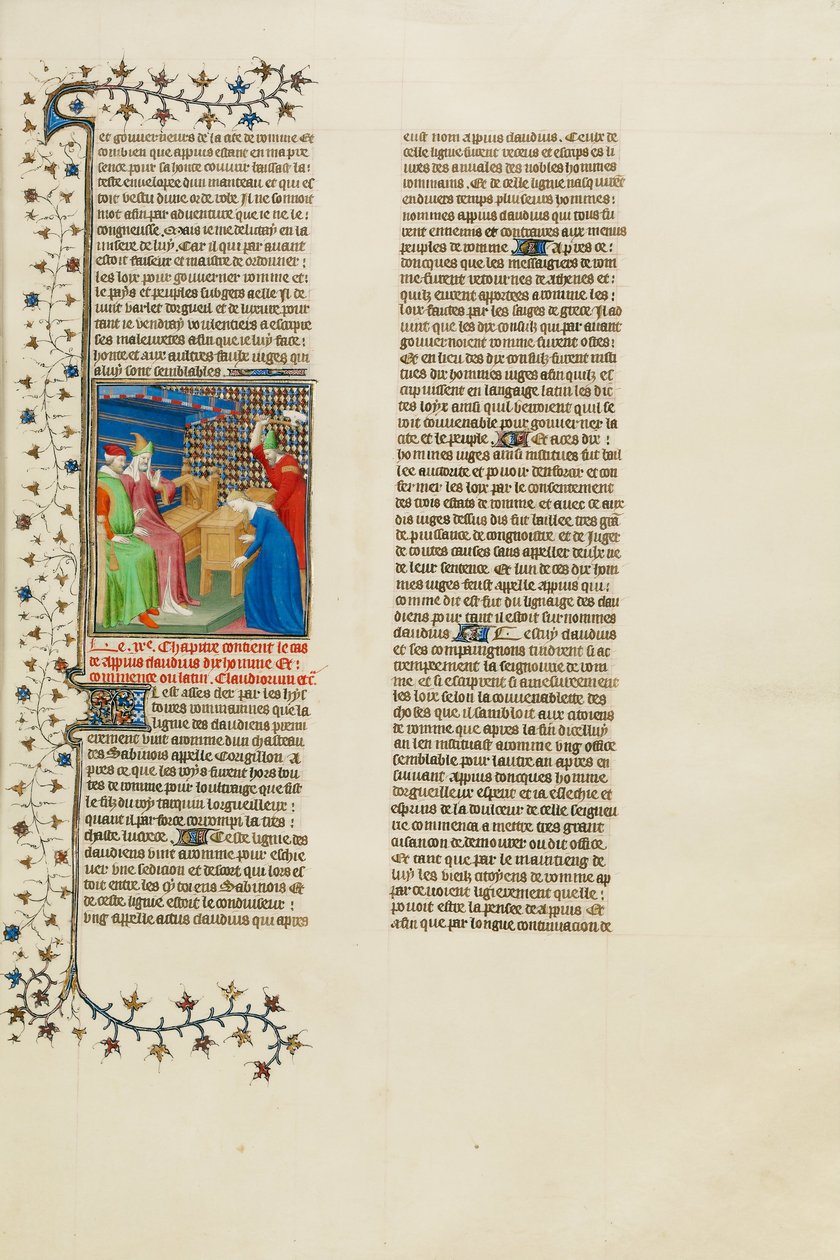 et gouverneurs de la cite de romme Et
combien que appius estant en ma pre
sence pour sa honte couvrir laissast la
teste envelopee dun manteau et qui es
toit vestu dune orde robe Il ne sonnoit
mot afin par adventure que ie ne le
congneusse. Mais ie me delitay en la
misere de luy. Car il qui par avant
estoit faiseur et maistre de ordonner
les loix pour gouverner romme et
le pays et peuples subgets a elle Il de
vint varlet dorgueil et de luxure pour
tant ie vendray voulentiers a escripre
ses maleurtes afin que ie luy face
honte et aux aultres faulx iuges qui
a luy sont semblables.
Le .xve. Chapitre contient le cas
de Appius claudius dix homme Et
commence ou latin. Claudiorum etc.
Il est asses cler par les hys
toires rommannes que la
ligne des claudiens premi
erement vint a romme dun chasteau
des Sabinois appelle Corigillon A
pres ce que les roys furent hors bou
tes de romme pour loultraige que fist
le filz du roy tarquin lorgueilleux
quant il par force corrompi la tres
chaste lucrece. Ceste lignie des
claudiens vint a romme pour eschie
ver une sedicion et descort qui lors es
toit entre les cytoiens Sabinois Et
de ceste lignie estoit le conduiseur
ung appelle actus claudius qui apres
eust nom appius claudius. Ceulx de
celle ligne furent receus et escrips es li
vres des annales des nobles hommes
rommains. Et de celle ligne nasquirent
en divers temps pluseurs hommes
nommes appius claudius qui tous fu
rent ennemis et contraires aux menus
peuples de romme Apres ce
doncques que les messaigiers de rom
me furent retournes de athenes et
quilz eurent apportees a romme les
loix faictes par les saiges de grece Il ad
vint que les dix consulz qui par avant
gouvernoient romme furent ostes
Et en lieu des dix consulz furent insti
tues dix hommes iuges afin quilz es
cripvissent en langaige latin les dic
tes loyx ainsi quil verroient quil se
roit couvenable pour gouverner la
cite et le peuple. Et a ces dix
hommes iuges ainsi institues fut bail
lee auctorite et povoir denforcer et con
fermer les loix par le consentement
des trois estats de romme et avec ce aux
dis iuges dessus dis fut baillee tres grant
de puissance de congnoistre et de Juger
de toutes causes sans appeller deulx ne
de leur sentence. Et lun de ces dix hom
mes iuges feust appelle Appius qui
comme dit est fut du lignaige des clau
diens pour tant il estoit surnommes
claudius Cestuy claudius
et ses compaignons tindrent si at
trempeement la seignourie de rom
me et si escriprent si amesureement
les loix selon la couvenablete des
choses que il sambloit aux citoiens
de romme que apres la fin dicelluy
an len instituast a romme ung office
semblable pour lautre an apres en
suivant Appius doncques homme
dorgueilleux esperit et ia esleechie et
esprins de la doulceur de celle seigneu
rie commenca a mettre tres grant
cusancon de demourer ou dit office
Et tant que par le maintieng de
luy les vieilz citoyens de romme ap
parcevoient ligierement quelle
povoit estre la pensee de Appuis Et
afin que par longue continuacion de